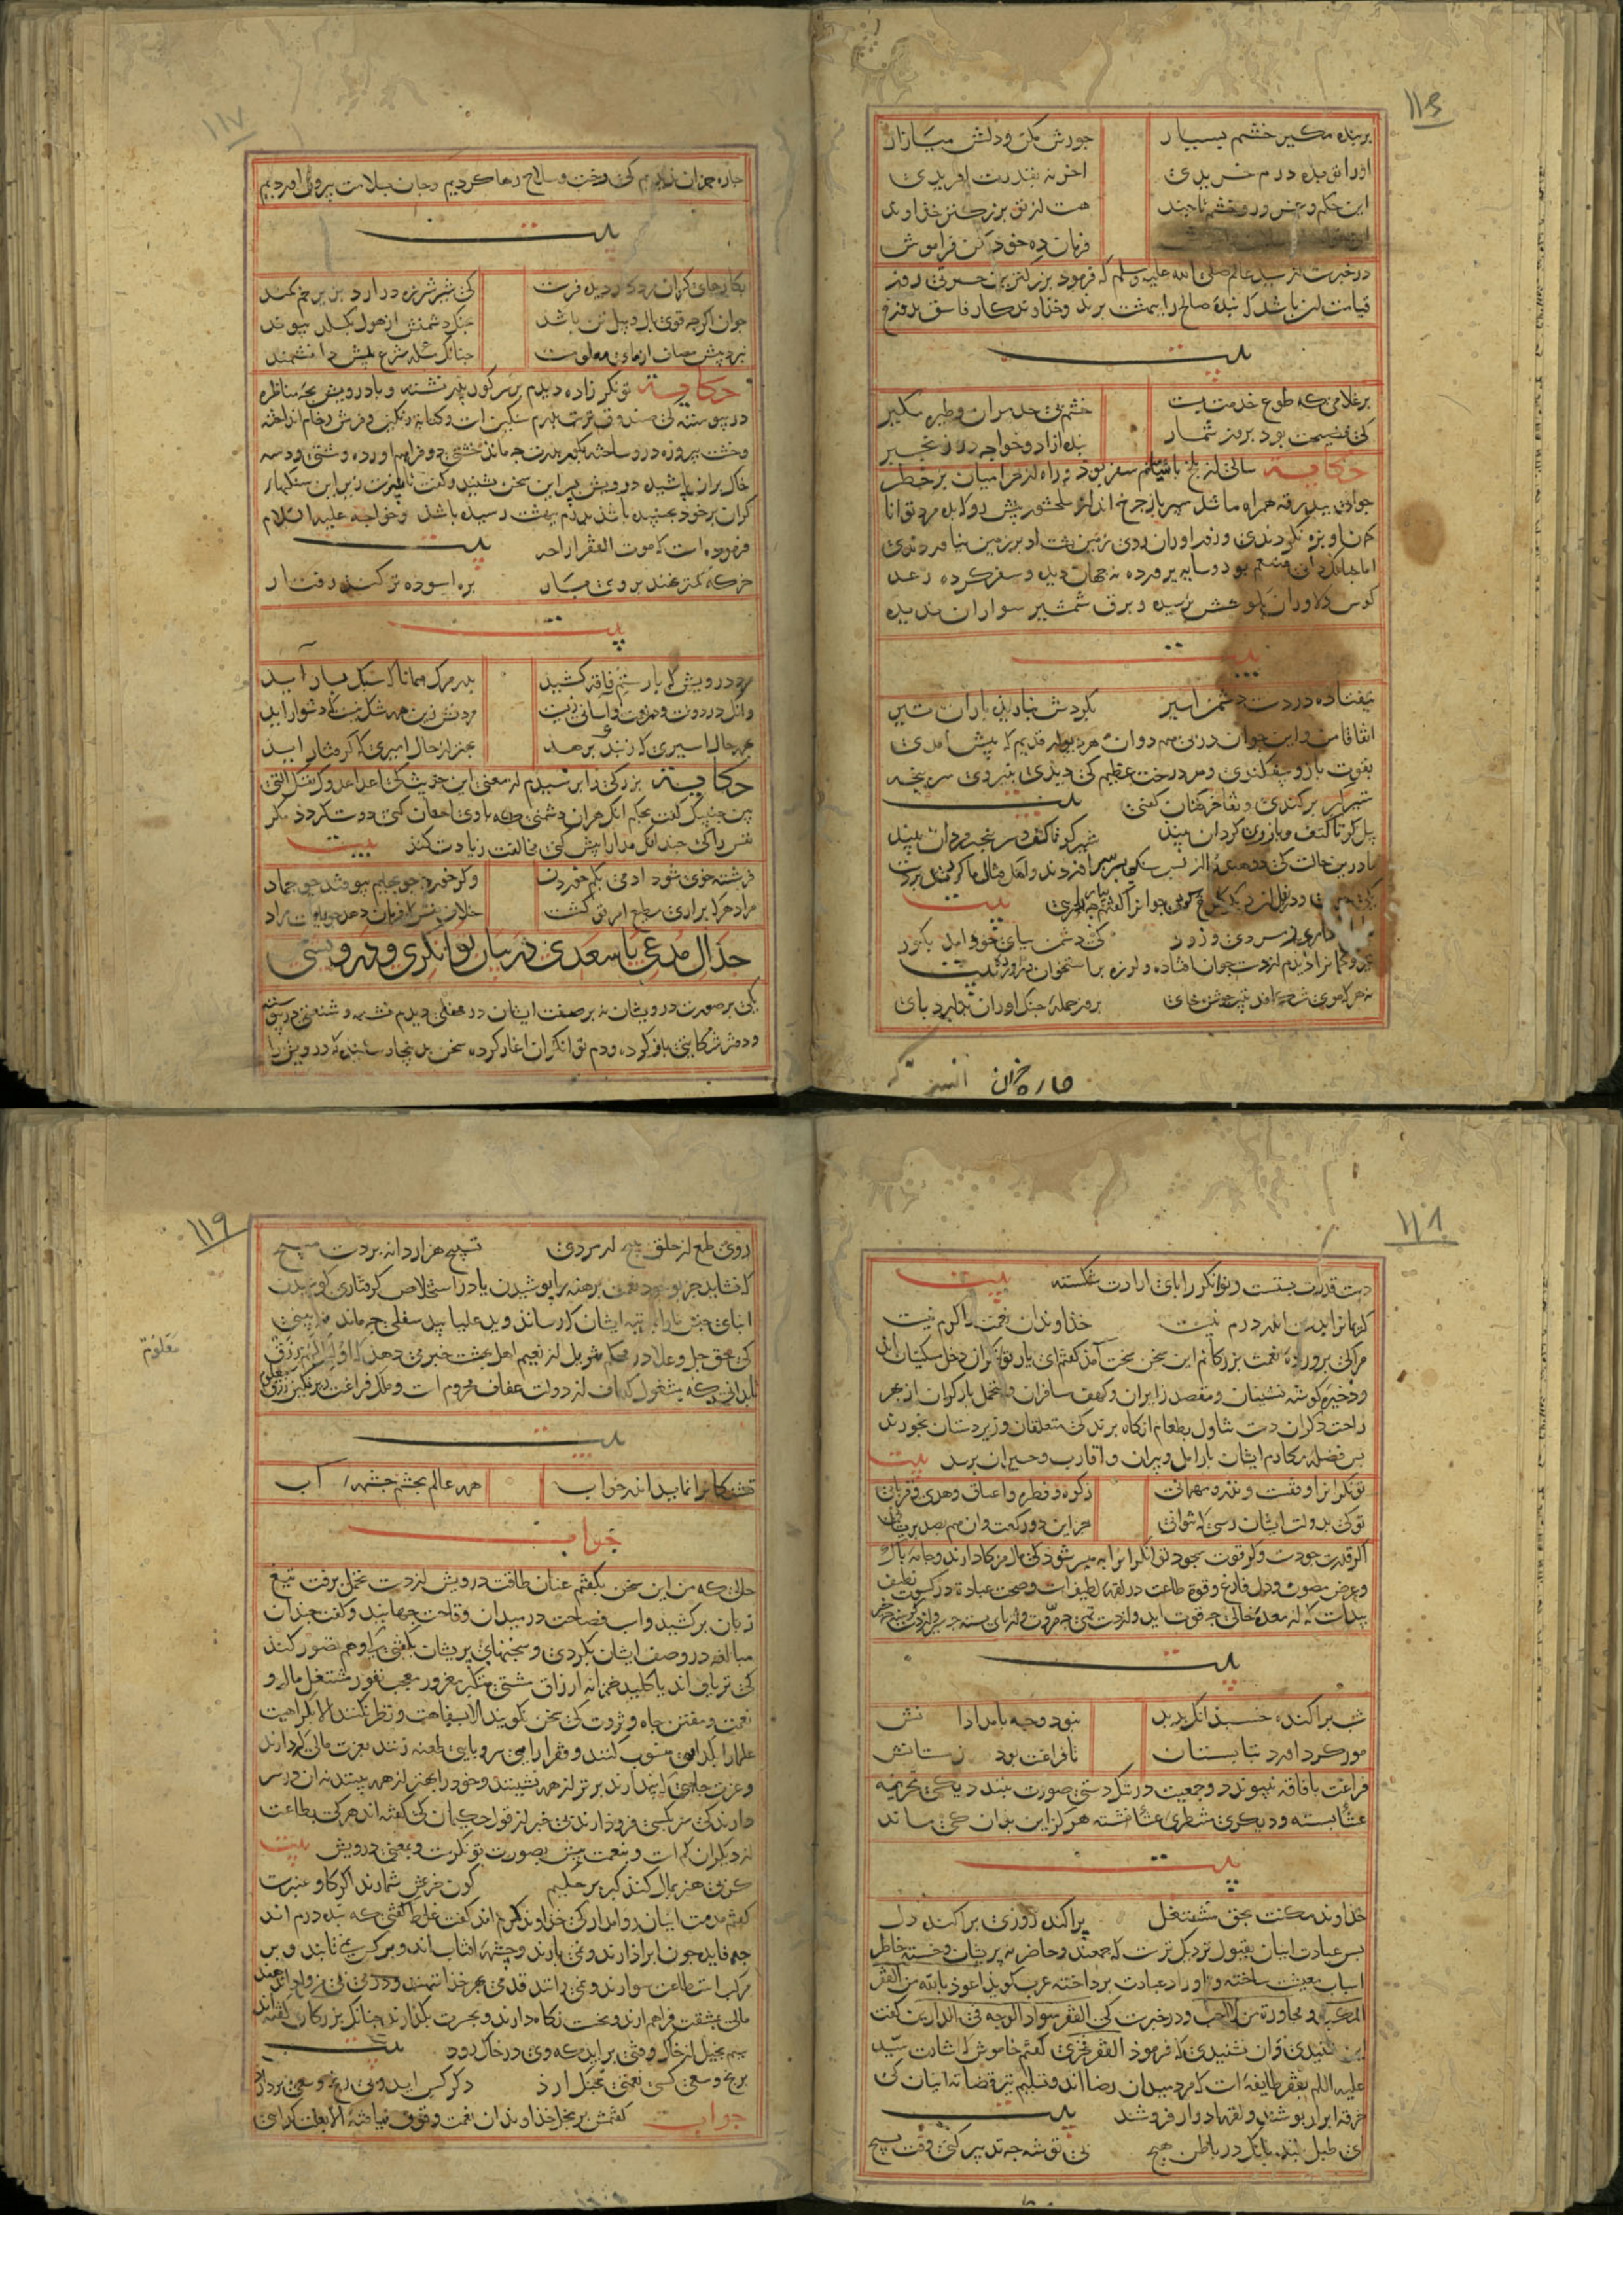 ۱۱۶
بر بنده مگیر خشم بسیار
جورش مکن و دلش میازار
او را تو بده درم خریدی
اخر نه بقدرت افریدی
این حکم و غرور و خشم تا چند
هست از تو بزرگتر خداوند
فرمان ده خود مکن فراموش
در خبرست از سید عالم صلی الله علیه وسلم که فرمود بزرکترین حسرتی روز
قیامت ان باشد که بنده صالح را ببهشت برند و خداوندکار فاسق بدوزخ
بیت
بر غلامی که طوع خدمت تست
خشم بی حد مران و طیره مکیر
کی فضیحت بود بروز شمار
بنده ازاد و خواجه در زنجیر
حکایت سالی از بلخ بامیانم سفر بود و راه از حرامیان پر خطر
جوانی ببدرقه همراه ما شد سپرباز چرخ انداز سلحشور بیش زور که بده مرد توانا
کمان او بزه نکردندی و زور اوران روی زمین پشت او بر زمین نیاوردندی
اما چنانک دانی متنعم بود و سایه پرورده نه جهان دیده و سفر کرده رعد
کوس دلاوران بکوشش نرسیده و برق شمشیر سواران ندیده
بیت
نیفتاده در دست دشمن اسیر
بکردش نباریده باران تیر
اتفاقا من و این جوان در پی هم دوان هر دیوار قدیم که پیش امدی
بقوت بازو بیفکندی و هر درخت عظیم کی دیدی بنیروی سرپنجه
برکندی و تفاخرکنان کفتی بیت
پیل کو تا کتف و بازوی کردان بیند
شیر کو تا کف و سرپنجه مردان بیند
ما درین حالت کی دو هندو از پس سنکی سر برافراختند و
جوانرا کفتم بیت
بیار آنچه داری ز مردی و زور
کی دشمن بپای خود امد بکور
تیر و کمانرا دیدم از دست جوان افتاده و لرزه بر استخوان بیت
نه هر که موی شکافد بتیر جوشن خای
بروز حمله جنک اوران بدارد پای
چاره جزان
۱۱۷
چاره جزان ندیدیم کی رخت و سلاح رها کردیم و جان بسلامت بیرون اوردیم
بیت
بکارهای کران مرد کاردیده فرست
کی شیر شرزه در ارد بزیر خم کمند
جوان اکرچه قوی یال و پیل تن باشد
بجنک دشمنش از هول بکسلد پیوند
نبرد پیش مصاف ازمای معلومست
چنانک مسئله شرع پیش دانشمند
حکایت توانکر زاده دیدم بر سر کور پدر نشسته و با درویش بچه مناظره
در پیوسته کی صندوق تربت پدرم سنکین است و کتابه رنکین و فرش رخام انداخته
وخشت پیروزه درو ساخته بکور پدرت چه ماند خشتی دو فراهم اورده و مشتی دو سه
خاک بران پاشیده درویش پسر این سخن بشنید و کفت تا پدرت زیر این سنکهای
کران بر خود بجنبیده باشد پدرم ببهشت رسیده باشد و خواجه علیه السلام
فرموده است که موت الفقرا راحة بیت
خر که کمتر نهند بر وی بار
بره اسوده تر کند رفتار
بیت
مرد درویش که بار ستم فاقه کشید
بدر مرک همانا که سبک بار آید
وانک در دولت و در نعمت و آسانی زیست
مردنش زین همه شک نیست که دشوار اید
بهمه حال اسیری که ز بندی برهد
بهتر از حال امیری که کرفتار اید
حکایت بزرکی را پرسیدم از معنی این حدیث کی اعدا عدوک نفسک التی
بین جنبیک کفت بحکم انک هر ان دشمنی که با وی احسان کنی دوست کردد مکر
نفس را کی چندانک مدارا بیش کنی مخالفت زیادت کند بیت
فرشته خوی شود ادمی بکم خوردن
و کر خورد چو بهایم بیوفتد چو جماد
مراد هر که براری مطیع امر تو کشت
خلاف نفس که فرمان دهد چو یافت مراد
جدال مدعی با سعدی در بیان توانکری و درویشی
یکی بر صورت درویشان نه بر صفت ایشان در محفلی دیدم نشسته و شنعتی در پیوسته
و دفتر شکایتی باز کرده و ذم توانکران اغاز کرده سخن بدینجا رسانیده که درویش را
۱۱۸
دست قدرت بستست و توانکر را پای ارادت شکسته بیت
کریمانرا بدست اندر درم نیست
خداوندان نعمت را کرم نیست
مرا کی پرورده نعمت بزرکانم این سخن سخت آمد کفتم ای یار توانکران دخل مسکینان اند
و ذخیره کوشه نشینان و مقصد زایران و کهف مسافران و متحمل بار کران از بهر
راحت دکران دست تناول بطعام انکاه برند کی متعلقان و زیردستان بخورند
پس فضله مکارم ایشان بارامل و پیران و اقارب و جیران برسد بیت
توانکرانرا وقفست و نذر و مهمانی
زکوة و فطره و اعتاق و هدی و قربانی
تو کی بدولت ایشان رسی که نتوانی
جز این دو رکعت و ان هم بصد پریشانی
اکر قدرت جودست و کر قوت سجود توانکرانرا به میسر شود کی مال مزکا دارند و جامه پاک
و عرض مصون و دل فارغ و قوة طاعت در لقمه لطیف است و صحت عبادة در کسوت نظیف
پیداست که از معده خالی چه قوت اید و از دست تهی چه مروت و از پای بسته چه سیر و از دست کرسنه چه خیر
بیت
شب پراکنده خسبد انک پدید
نبود وجه بامدادانش
مور کرد اورد بتابستان
تا فراغت بود زمستانش
فراغت با فاقه نپیوندد و جمعیت در تنک دستی صورت نبندد یکی تحریمه
عشا بسته و دیکری منتظر عشا نشسته هرکز این بدان کی ماند
بیت
خداوند مکنت بحق مشتغل
پراکنده روزی پراکنده دل
پس عبادت اینان بقبول نزدیک ترست که جمعند و حاضر نه پریشان و خسته خاطر
اسباب معیشت ساخته و باوراد عبادت پرداخته عرب کوید اعوذ بالله من الفقر
المکب و مجاورة من لا احب و در خبرست کی الفقر سواد الوجه فی الدارین کفت
این شنیدی و ان نشنیدی که فرمود الفقر فخری کفتم خاموش که اشارت سید
علیه السلام بفقر طایفه است که مرد میدان رضا اند و تسلیم تیر قضا نه اینان کی
خرقه ابرار پوشند و لقمه ادرار فروشند بیت
ای طبل بلند بانک در باطن هیچ
بی توشه چه تدبیر کنی وقت بسیچ
۱۱۹
روی طمع از خلق بپیچ ار مردی
تسبیح هزار دانه بر دست مپیچ
که نشاید جز بوجود نعمت برهنه را پوشیدن یا در استخلاص کرفتاری کوشیدن
ابنای جنس ما را بمرتبه ایشان که رساند و ید علیا بید سفلی چه ماند نه بینی
کی حق جل و علا در محکم تنزیل از نعیم اهل بهشت خبر می دهد که اولئک لهم رزق
معلوم
بدانی که مشغول کفاف از دولت عفاف محروم است و ملک فراغت زیر نکین رزق معلوم
بیت
تشنکانرا نماید اندر خواب
همه عالم بچشم چشمه آب
جواب
حالی که من این سخن بکفتم عنان طاقت درویش از دست تحمل برفت تیغ
زبان برکشید و اسب فصاحت در میدان وقاحت جهانید و کفت چندان
مبالغه در وصف ایشان بکردی و سخنهای پریشان بکفتی که وهم تصور کند
کی تریاق اند یا کلید خزانه ارزاق مشتی متکبر مغرور معجب نفور مشتغل مال و
نعمت و مفتتن جاه و ثروت کی سخن نکویند الا بسفاهت و نظر نکنند الا بکراهت
علما را بکدایی منسوب کنند و فقرا را بی سر و پایی طعنه زنند بعزت مالی که دارند
و عزت جاهی که پندارند برتر از همه نشینند و خود را بهتر از همه بینند نه ان در سر
دارند کی سر بکسی فرو دارند بی خبر از قول حکیمان کی کفته اند هر کی بطاعت
از دیکران کم است و بنعمت بیش بصورت توانکرست و بمعنی درویش بیت
کر بی هنر بمال کند کبر بر حکیم
کون خرش شمارند اکر کاو عنبرست
کفتم مذمت اینان روا مدار کی خداوند کرم اند کفت غلط کفتی که بنده درم اند
چه فایده چون ابر اذارند و نمی بارند و چشمه افتاب اند و بر کس نمی تابند و بر
مرکب استطاعت سوارند و نمی رانند قدمی بهر خدا ننهند و درمی بی من و اذی ندهند
مالی بمشقت فراهم ارند و بخست نکاه دارند و بحسرت بکذارند چنانک بزرکان کفته اند
سیم بخیل از خاک وقتی براید که وی در خاک رود بیت
برنج و سعی کسی نعمتی بچنک ارد
دکر کس اید و بی رنج و سعی بردارد
جواب کفتمش بر بخل خداوندان نعمت وقوف نیافته الا بعلت کدایی
معلوم